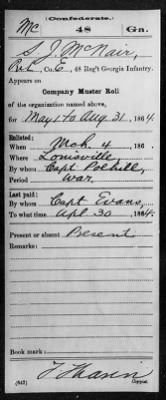 (Confederate.)
Mc 48 Gn.
S. J. McNair,
Pvt., Co. E, 48 Reg't Georgia Infantry.
Appears on
Company Muster Roll
of the organization named above,
for May 1 to Aug 31, 1864
Enlisted:
When Mch. 4, 186
Where Louisville,
By whom Capt Polhill,
Period War.
Last paid:
By whom Capt Evans,
To what time Apl 30, 1864.
Present or absent Present
Remarks:
Book mark:
(642) Copyist.